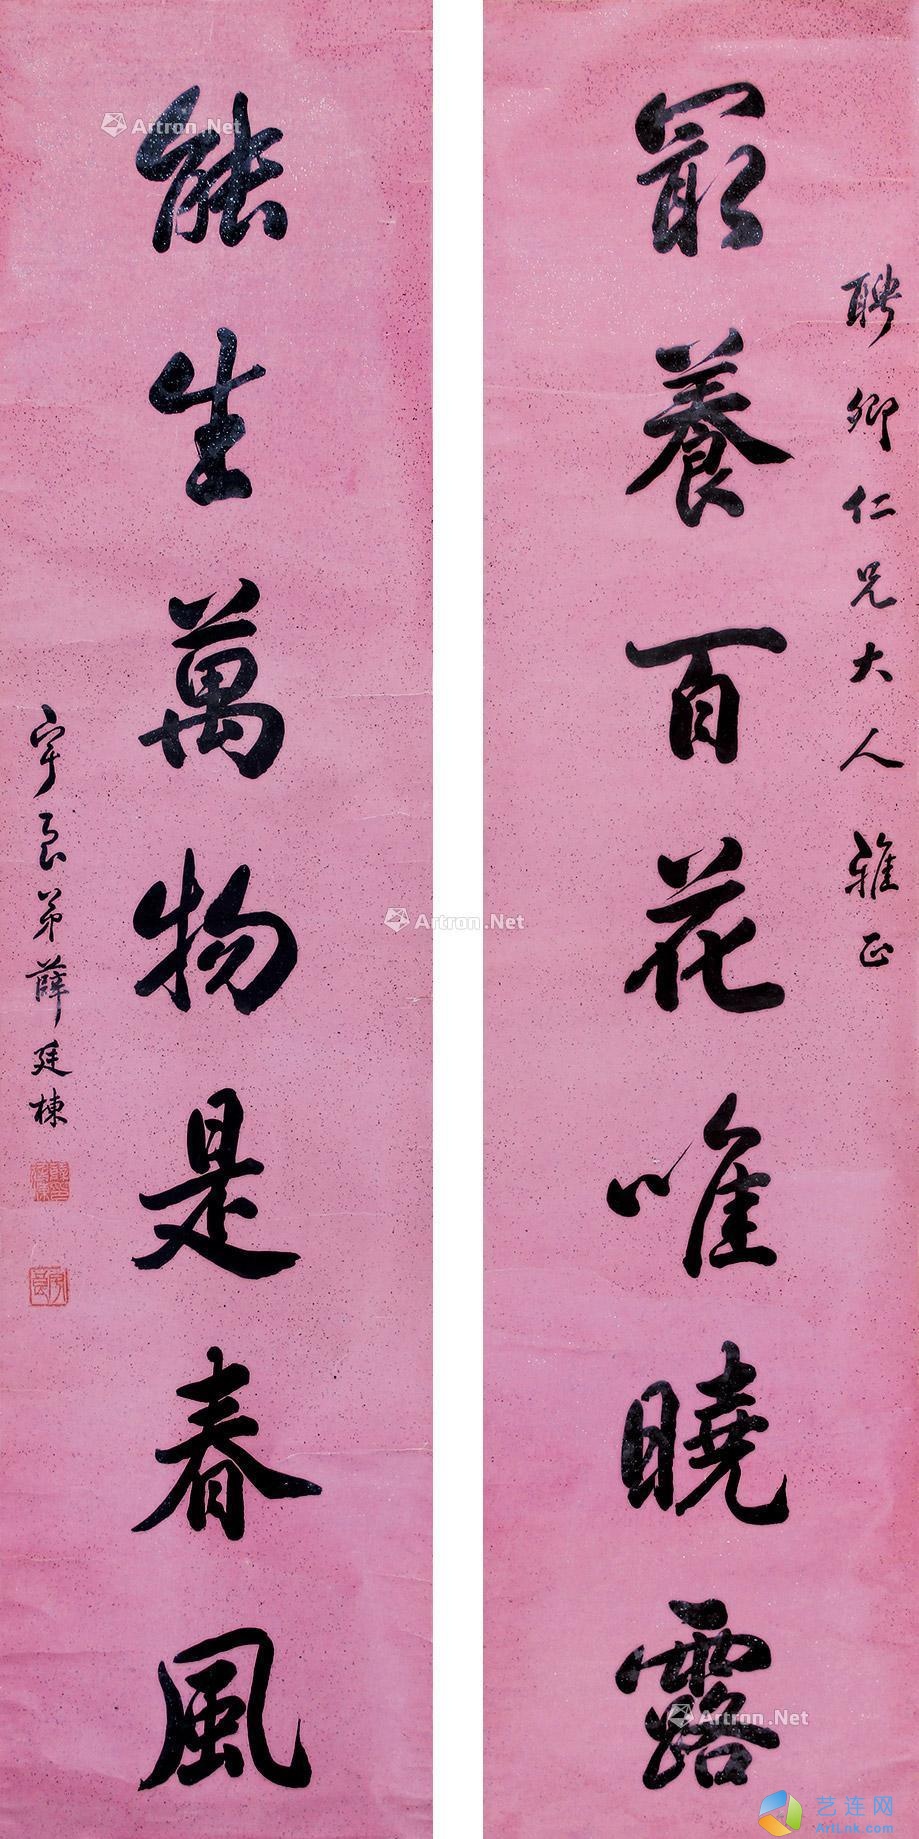 聘卿仁兄大人雅正
最養百花唯曉露
能生萬物是春風
宇良弟薛廷棟
Artron.Net
Artron.Net
Artron.Net
艺连网
ArtLnk.com